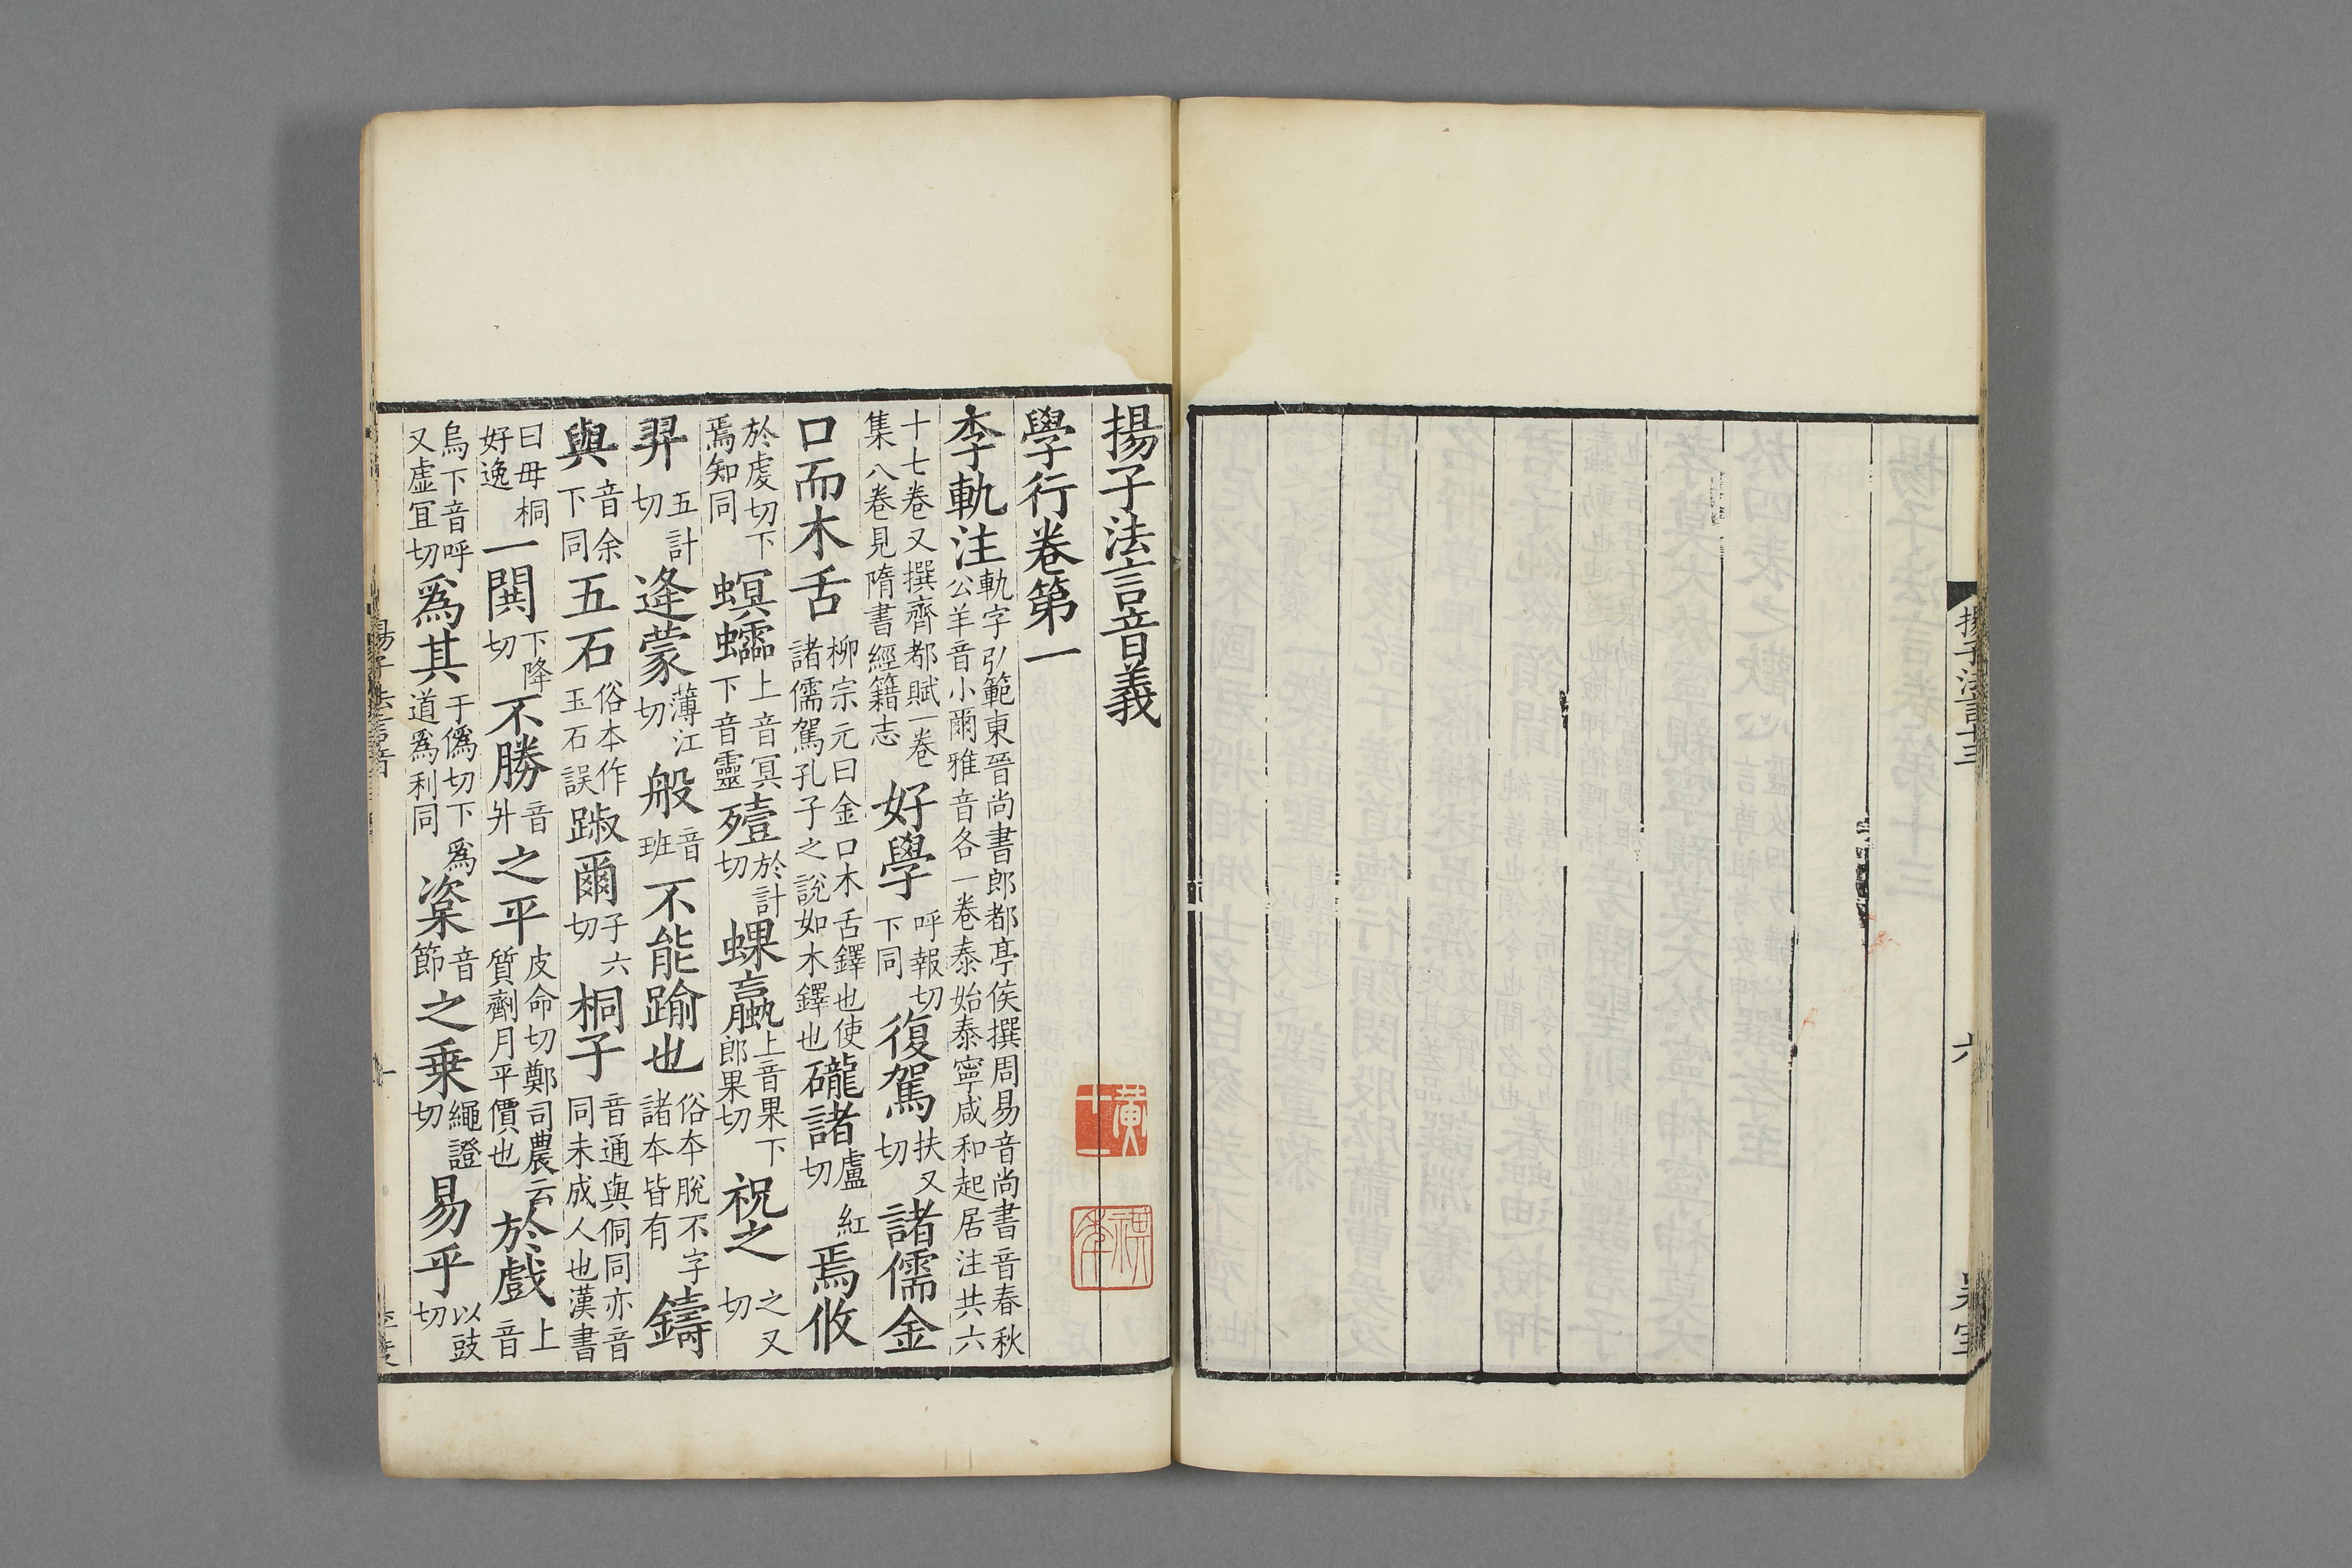 揚子法言十三
六
揚子法言音義
學行卷第一
李軌注軌字弘範東晉尚書郎都亭侯撰周易音尚書音春秋公羊音小爾雅音各一卷泰始泰寧咸和起居注共六
十七卷又撰齊都賦一卷集八卷見隋書經籍志好學呼報切下同復駕扶又切諸儒金
口而木舌柳宗元曰金口木舌鐸也使諸儒駕孔子之說如木鐸也礲諸盧紅切焉攸
於虔切下焉知同螟䘆上音冥下音靈殪於計切蜾蠃上音果下郎果切祝之之又切
羿五計切逄蒙薄江切般音班不能踰也俗本脫不字諸本皆有鑄
與音余下同五石俗本作玉石誤踧爾子六切桐子音通與侗同亦音同未成人也漢書
曰毋桐好逸一閧下降切不勝音升之平皮命切鄭司農云質劑月平價也於戲上音
烏下音呼又虛宜切爲其于僞切下爲道爲利同楶音節之乗繩證切易乎以豉切